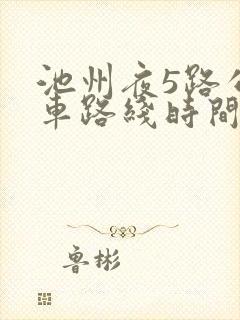 池州夜5路公
車路綫時間
鲁彬